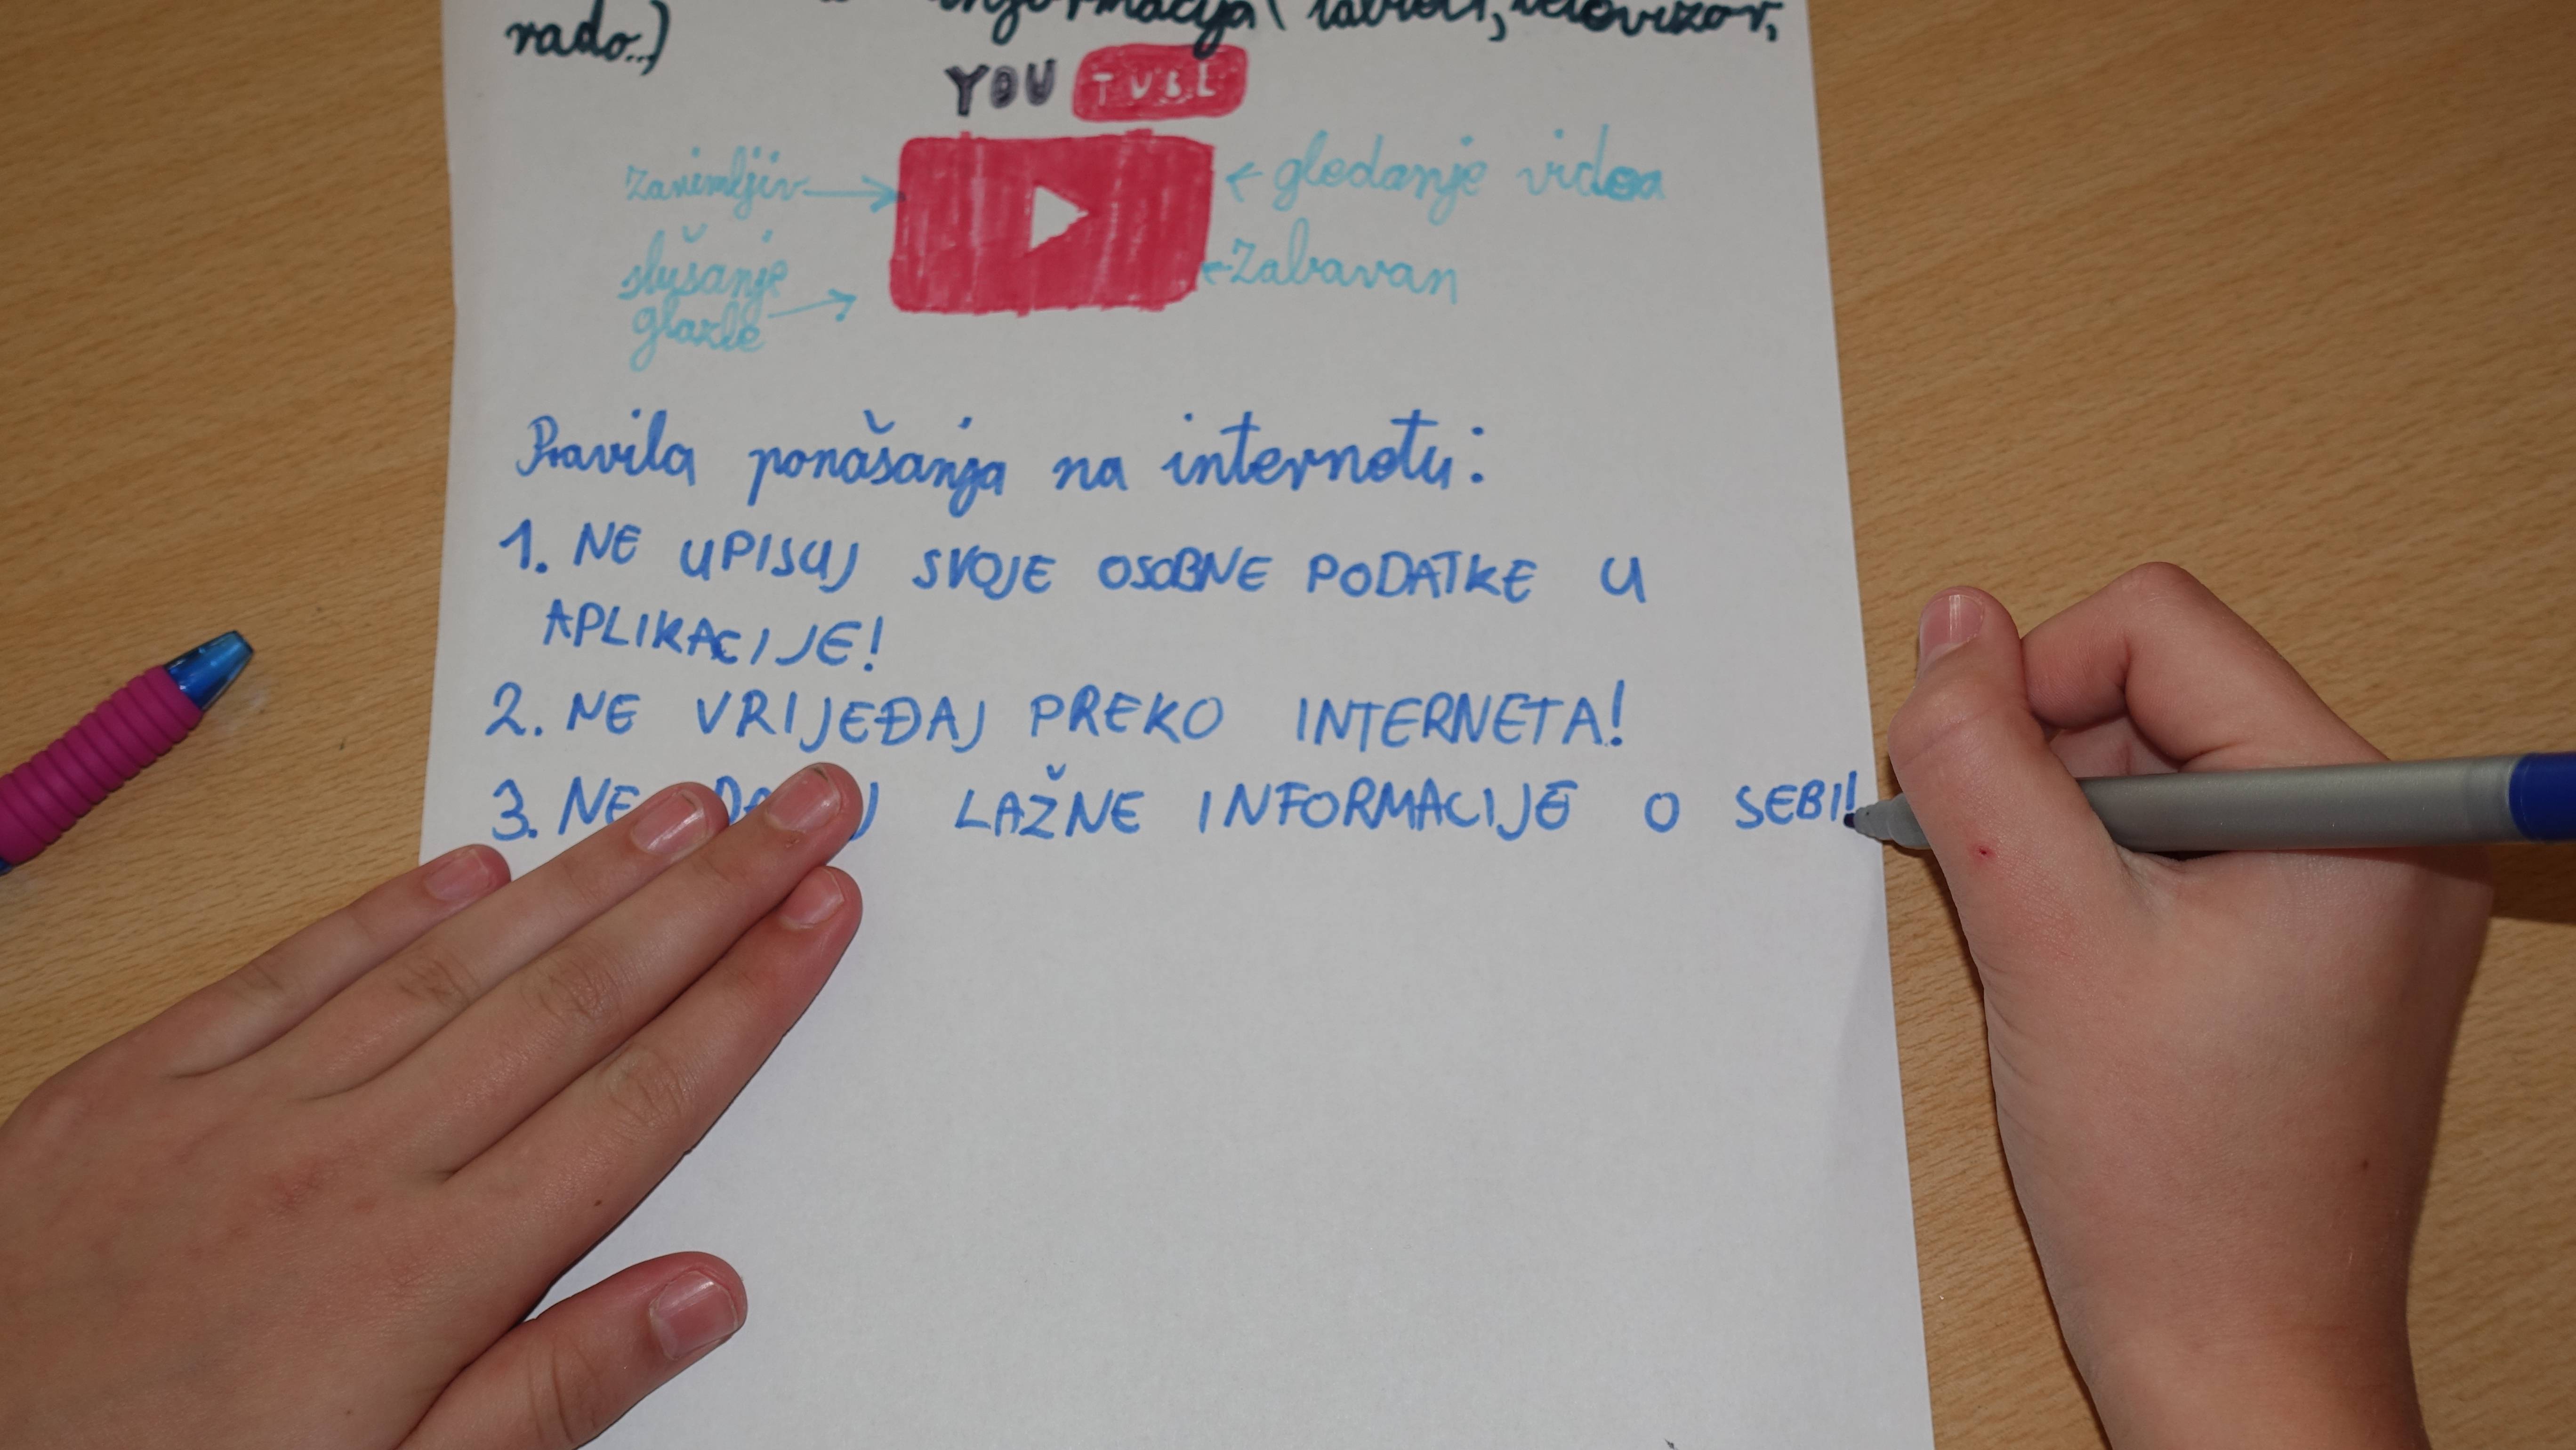 informacija (
rado...)
YOU TUBE
zanimljiv
gledanje videa
slušanje
glazbe
zabavan
Pravila ponašanja na internetu:
1. NE UPISUJ SVOJE OSOBNE PODATKE U
APLIKACIJE!
2. NE VRIJEĐAJ PREKO INTERNETA!
3. NE LAŽNE INFORMACIJE O SEBI!